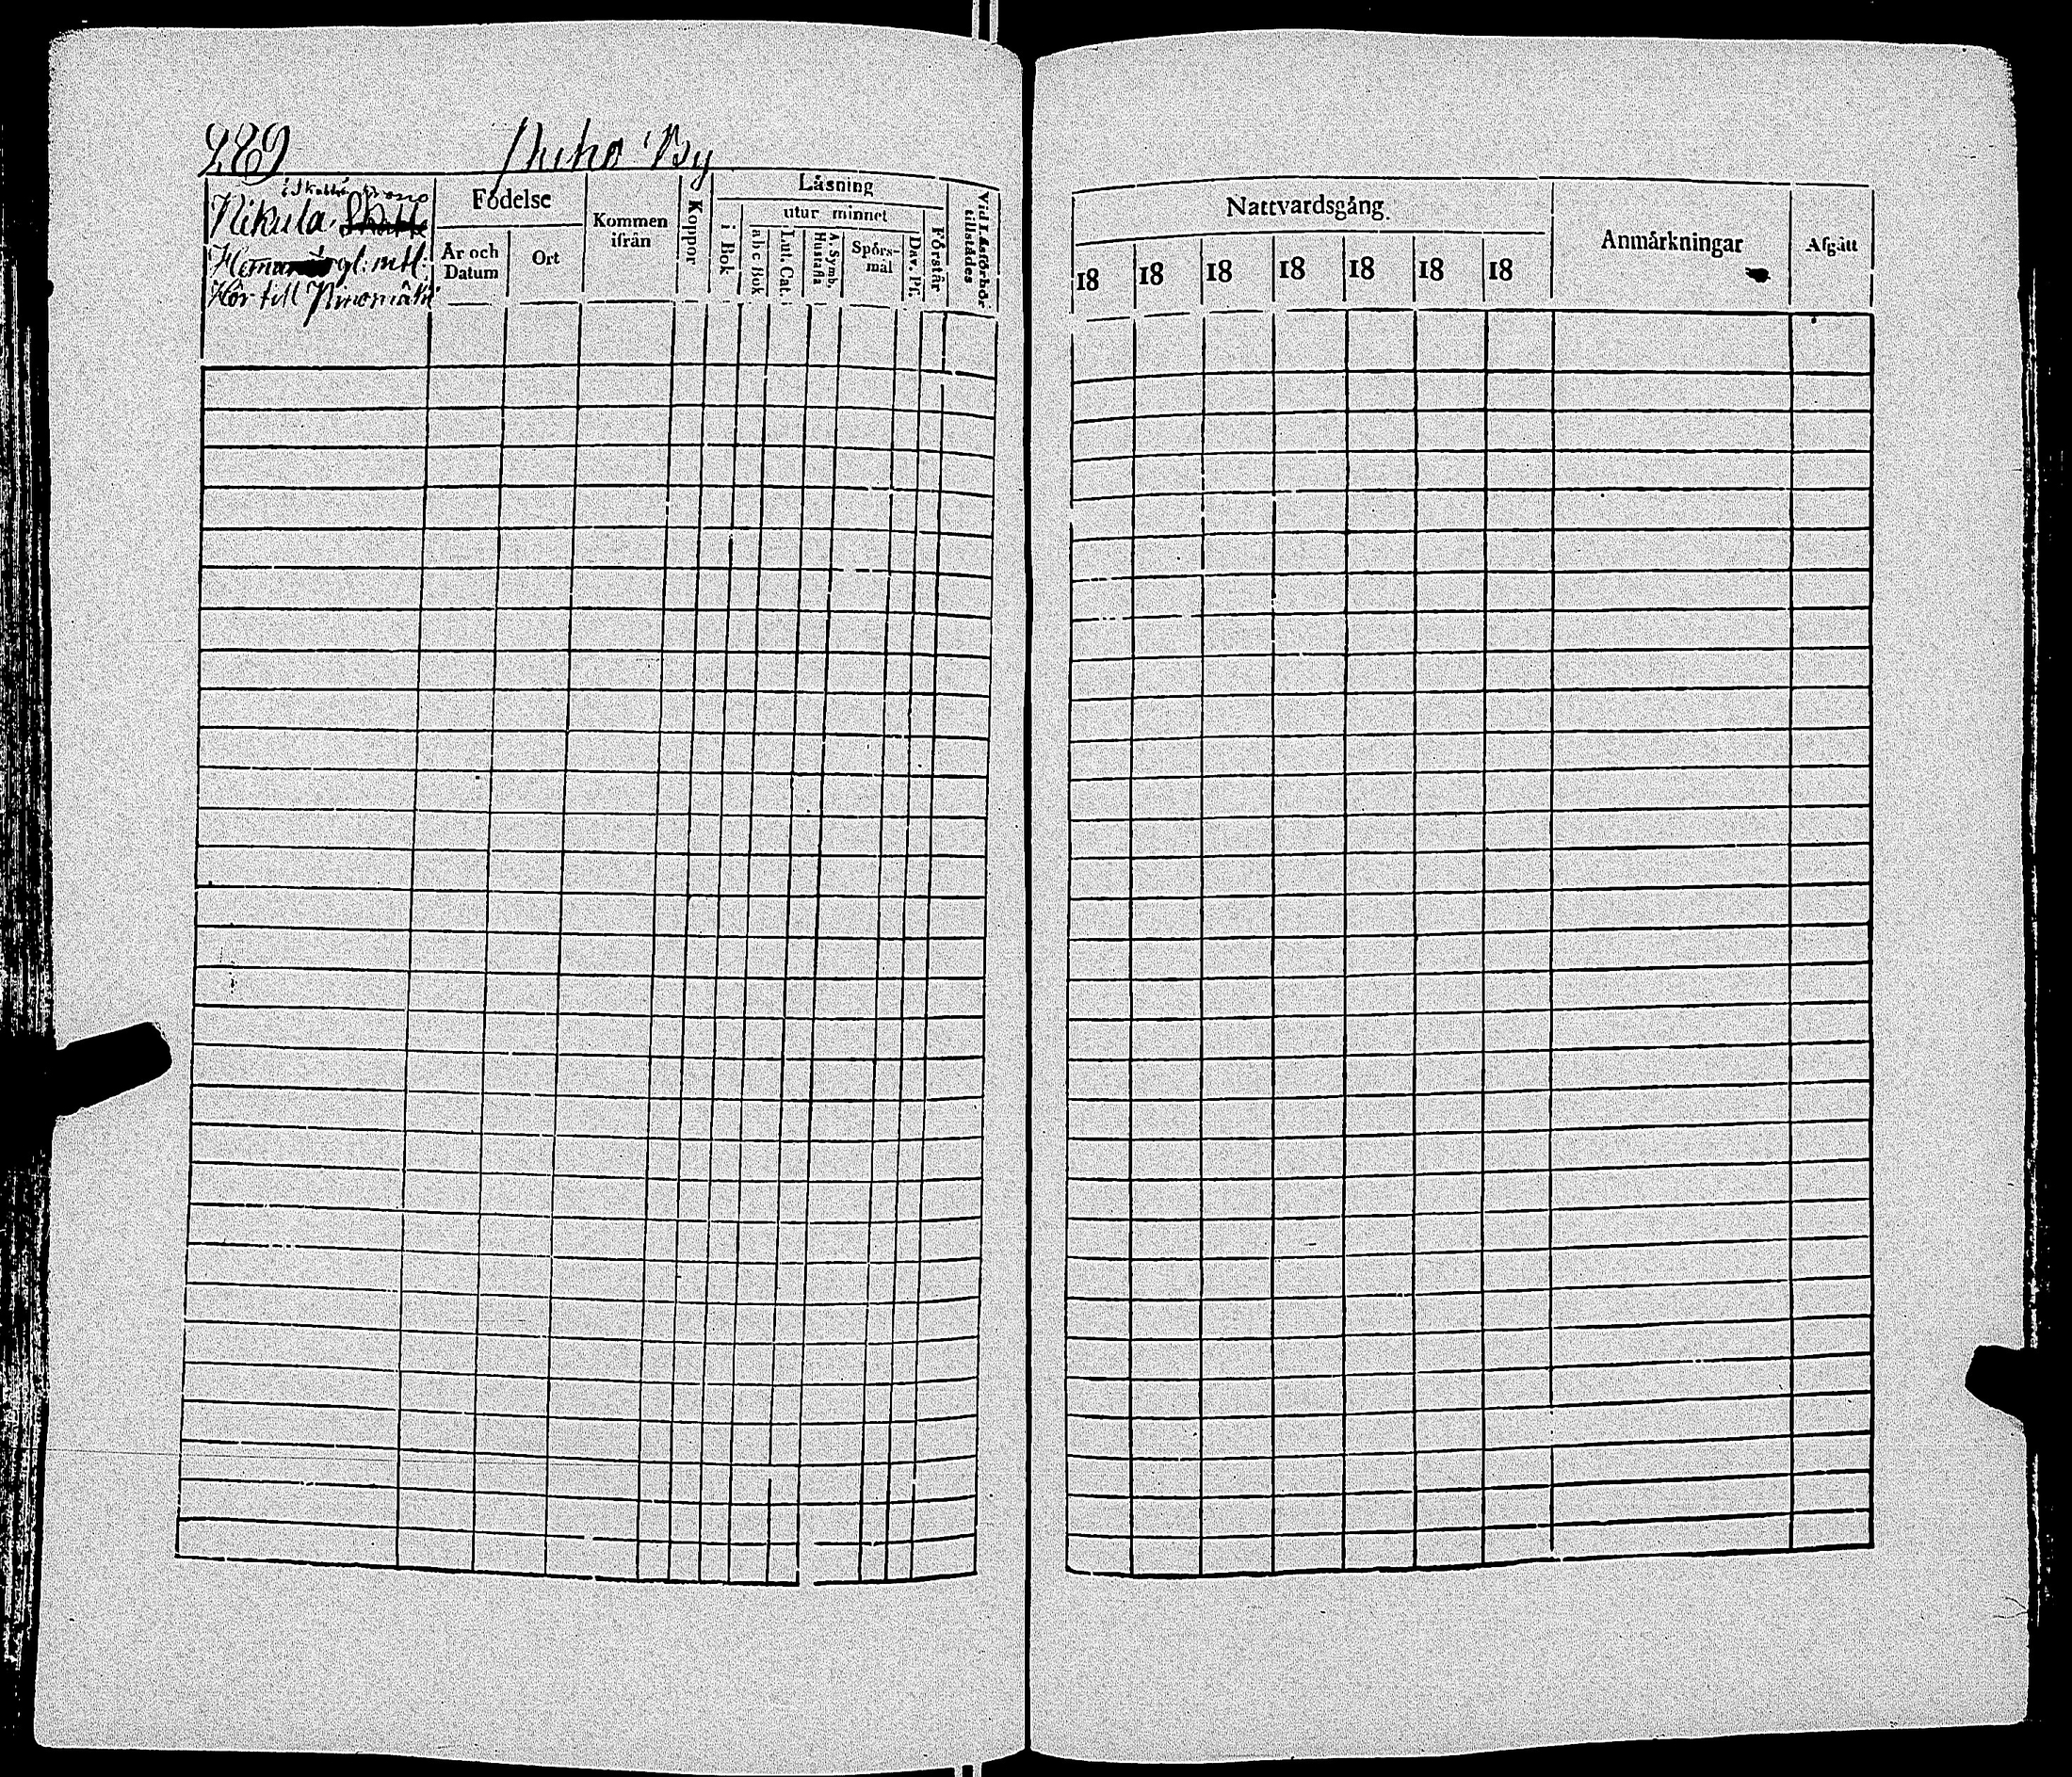 289
By
i Skatte Krono
Nikula Skatte
Heman gl. mtl.
Hör till
Födelse
År och Datum
Ort
Kommen ifrån
Koppor
Läsning
i Bok
utur minnet
abc Bok
Lut. Cat.
A. Symb. Hustafla
Spörsmål
Dav. Ps.
Förstår
Vid Läsförhör tillstädes
Nattvardsgång
18 18 18 18 18 18 18
Anmärkningar
Afgått